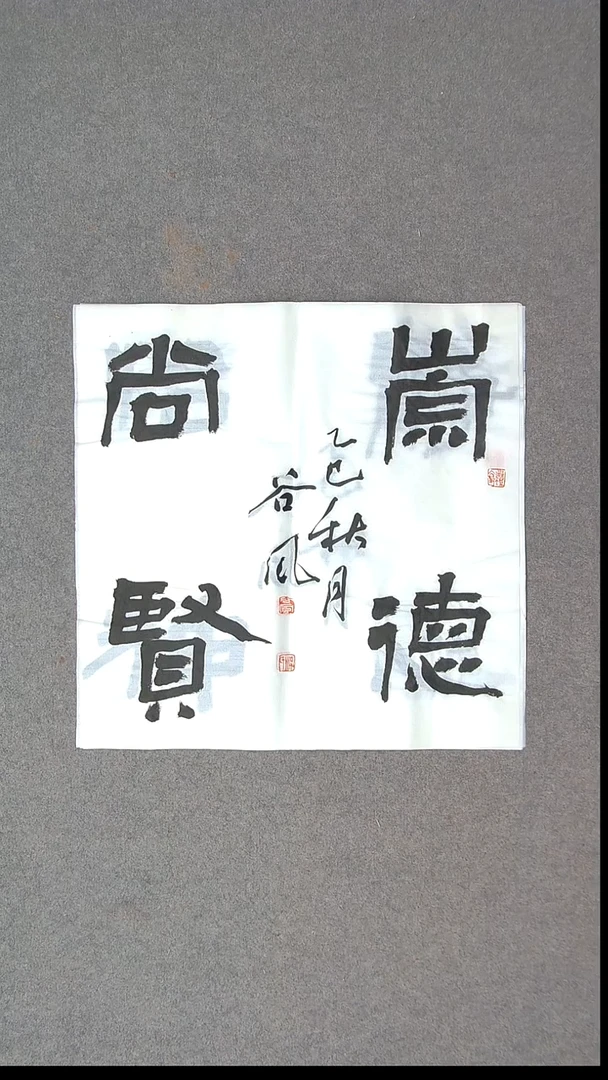 崇德
尚賢
乙巳秋月
谷風